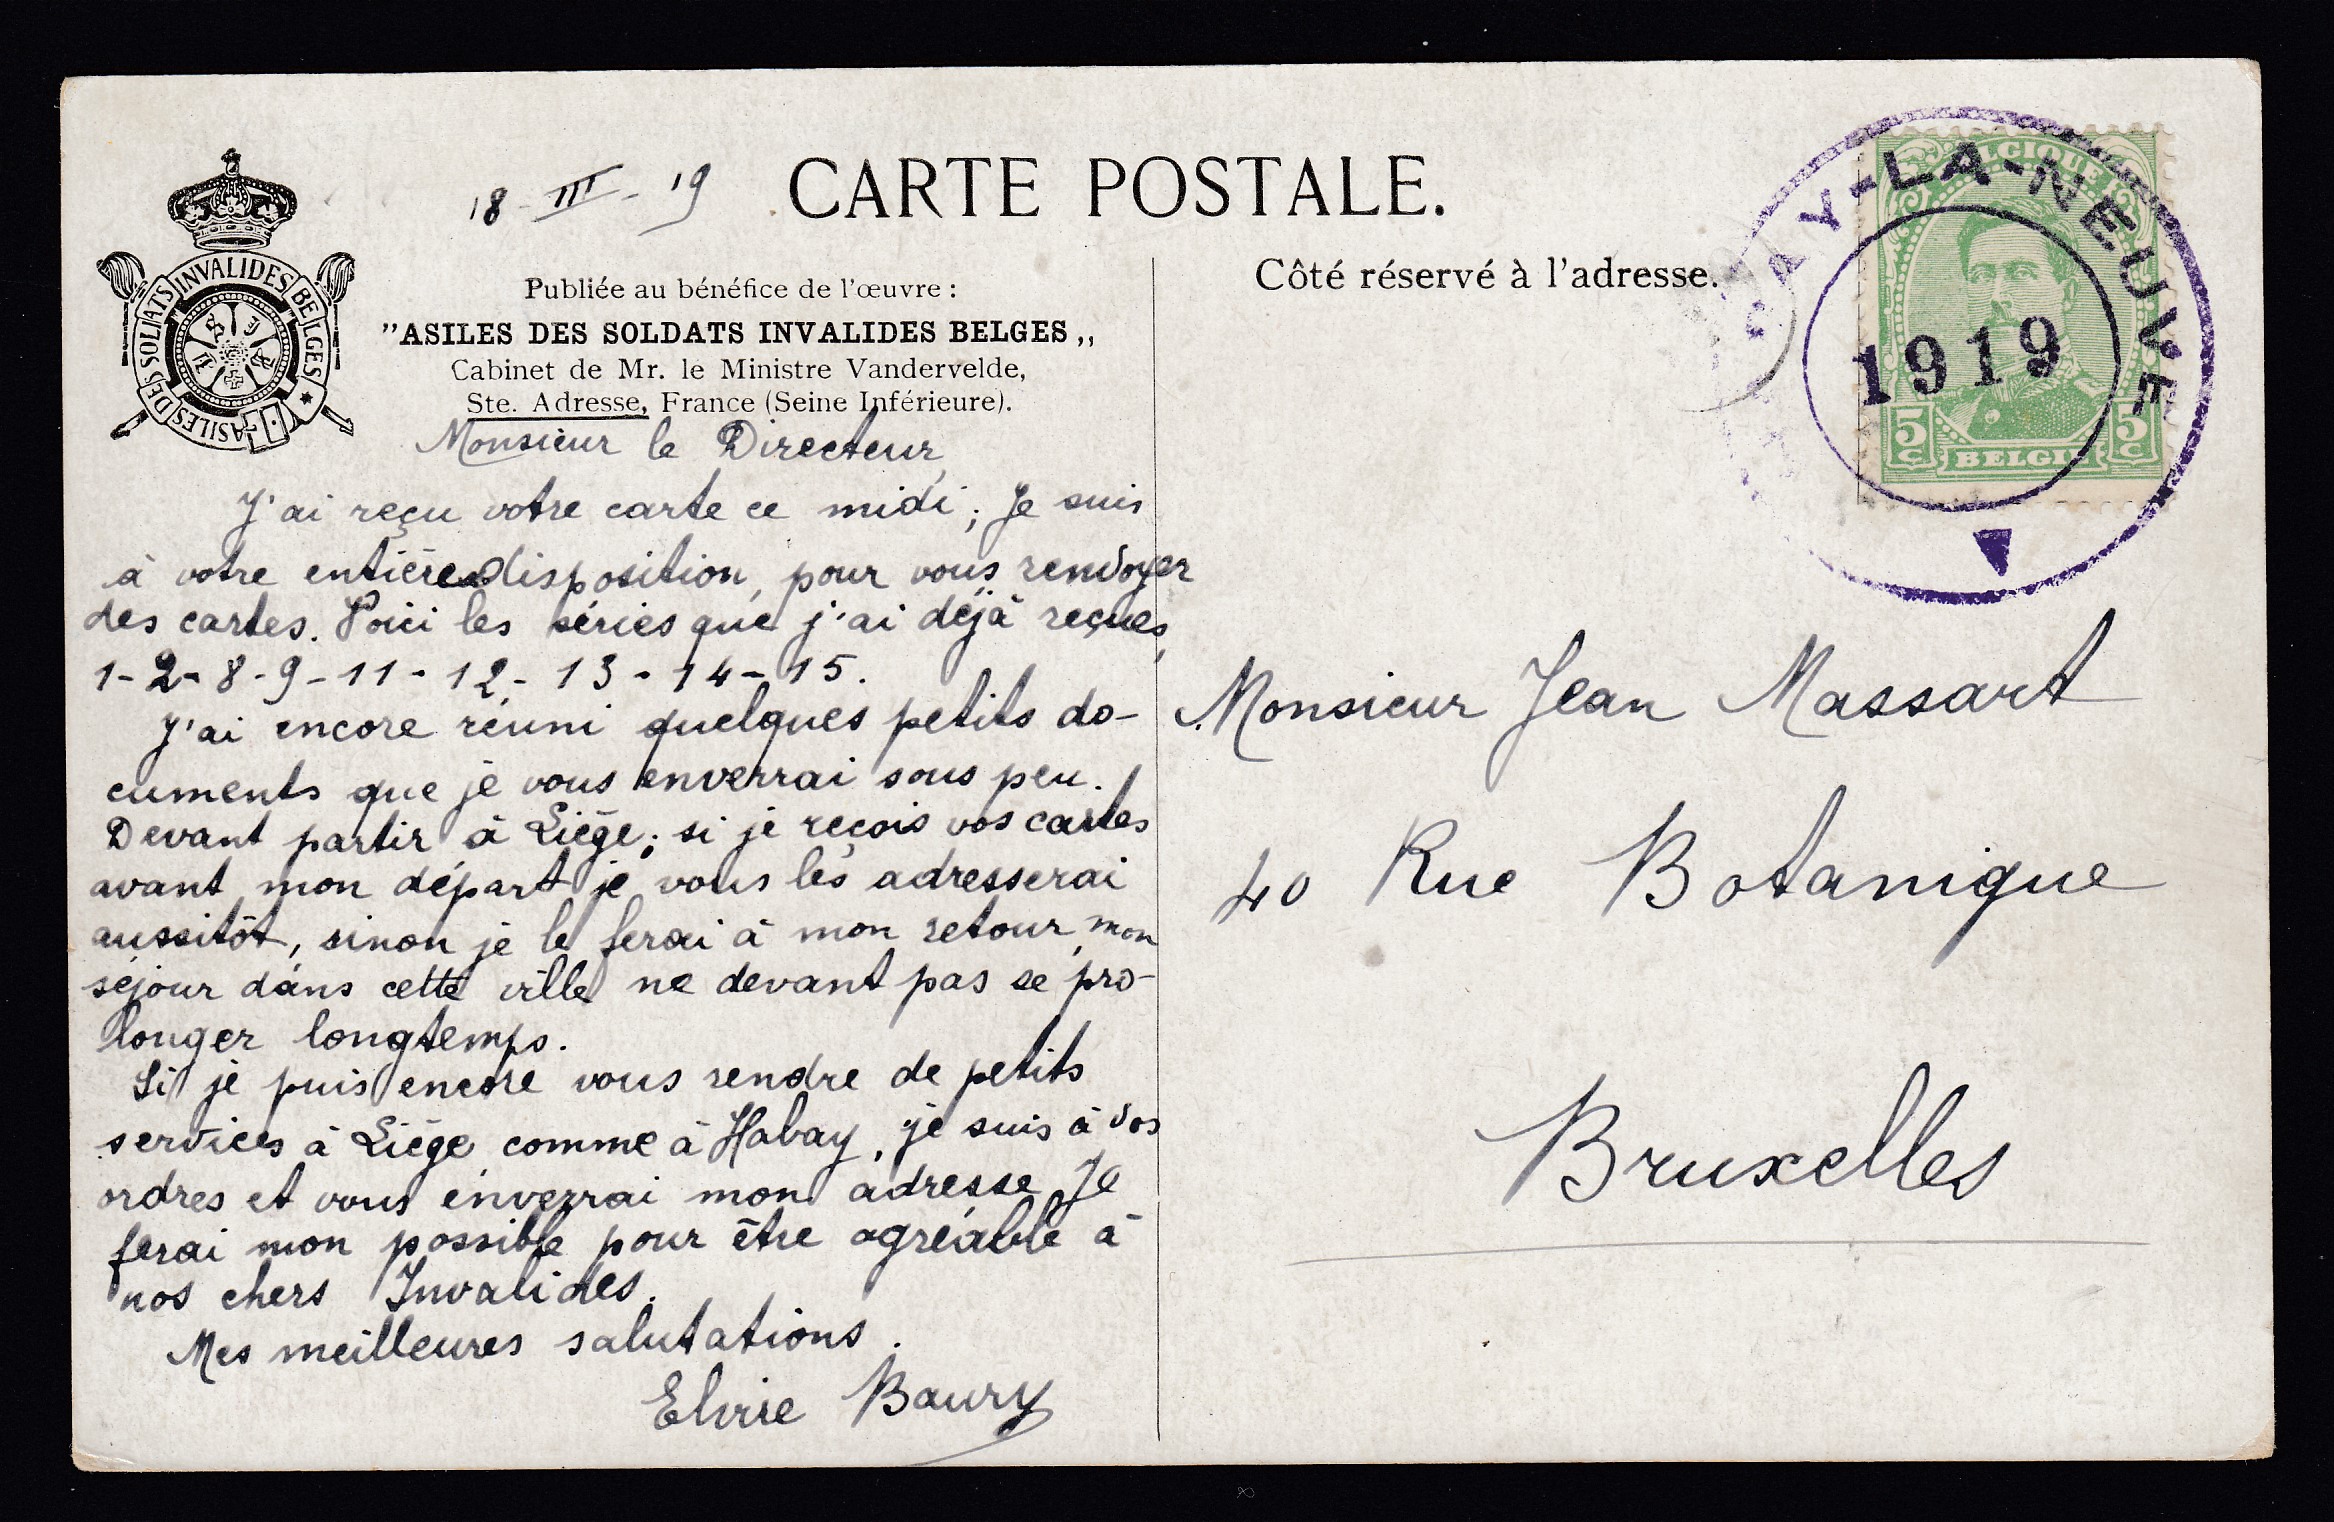 18-III-19
CARTE POSTALE.
ASILES DES SOLDATS INVALIDES BELGES
Publiée au bénéfice de l'œuvre :
"ASILES DES SOLDATS INVALIDES BELGES„
Cabinet de Mr. le Ministre Vandervelde,
Ste. Adresse, France (Seine Inférieure).
Monsieur le Directeur,
J'ai reçu votre carte ce midi; Je suis
à votre entière disposition, pour vous renvoyer
des cartes. Voici les séries que j'ai déjà reçues,
1-2-8-9-11-12-13-14-15.
J'ai encore réuni quelques petits do-
cuments que je vous enverrai sous peu.
Devant partir à Liège; si je reçois vos cartes
avant mon départ je vous les adresserai
aussitôt, sinon je le ferai à mon retour, mon
séjour dans cette ville ne devant pas se pro-
longer longtemps.
Si je puis encore vous rendre de petits
services à Liège comme à Habay, je suis à vos
ordres et vous enverrai mon adresse. Je
ferai mon possible pour être agréable à
nos chers Invalides.
Mes meilleures salutations.
Elvire Baury
Côté réservé à l'adresse.
BAY-LA-NEUVE
1919
BELGIQUE
5c 5c
BELGIE
Monsieur Jean Massart
40 Rue Botanique
Bruxelles